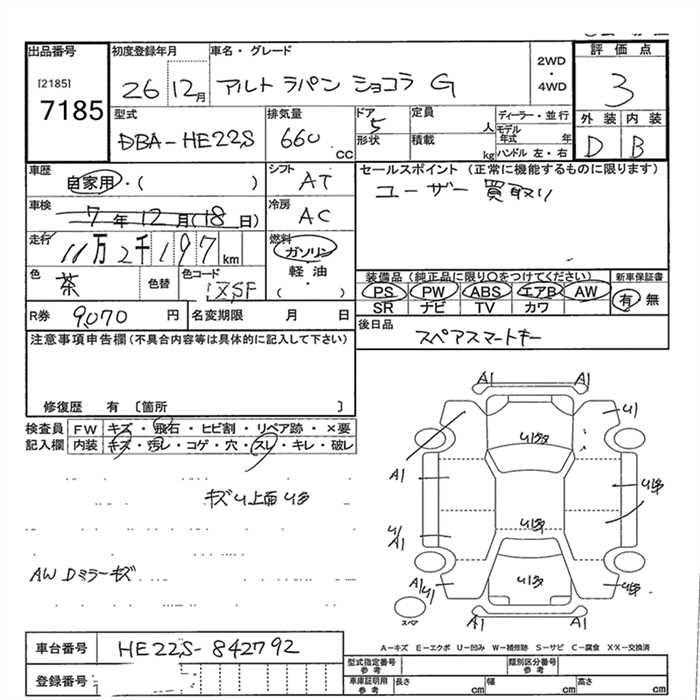 出品番号 初度登録年月 車名・グレード 評価点
[2185] 2WD
7185 26 12月 アルト ラパン ショコラ G ・ 3
4WD
型式 排気量 ドア 定員 ディーラー・並行 外装 内装
DBA-HE22S 660 CC 5 人 モデル年式 年 D B
形状 積載 kg ハンドル 左・右
車歴 シフト セールスポイント (正常に機能するものに限ります)
自家用・( ) AT ユーザー買取り
車検 7年12月(18日) 冷房 AC
走行 11万2千197km 燃料 ガソリン
軽油
色 茶 色替 色コード ZSF ・( )
装備品(純正品に限り○をつけてください) 新車保証書
PS PW ABS エアB AW 有 無
SR ナビ TV カワ
R券 9,070 円 名変期限 月 日
後日品 スペアスマートキー
注意事項申告欄(不具合内容等は具体的に記入して下さい)
修復歴 有 〔箇所 〕
検査員 FW キズ・飛石・ヒビ割・リペア跡・×要
記入欄 内装 キズ・汚レ・コゲ・穴・スレ・キレ・破レ
キズU上面U多
AW Dミラーキズ
A1 A1
U1
U多
A1 U多
U1 U多
A1
A1 U1 U多 U多
A1 A1
スペア
A-キズ E-エクボ U-凹み W-補修跡 S-サビ C-腐食 XX-交換済
車台番号 HE22S-842792
登録番号
型式指定番号 参考 類別区分番号 参考
車庫証明用 参考 長さ cm 幅 cm 高さ cm